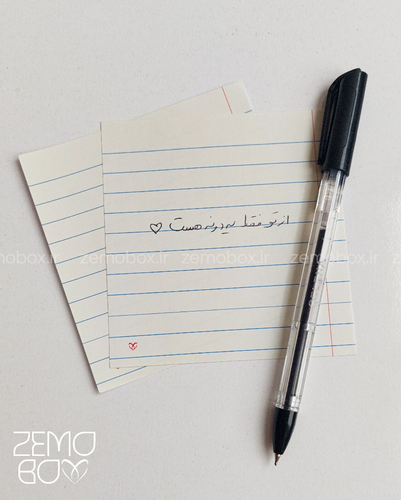 از تو فقط یه دونه هست ♡
zemobox.ir zemobox.ir zemobox.ir
ZEMO
BOX